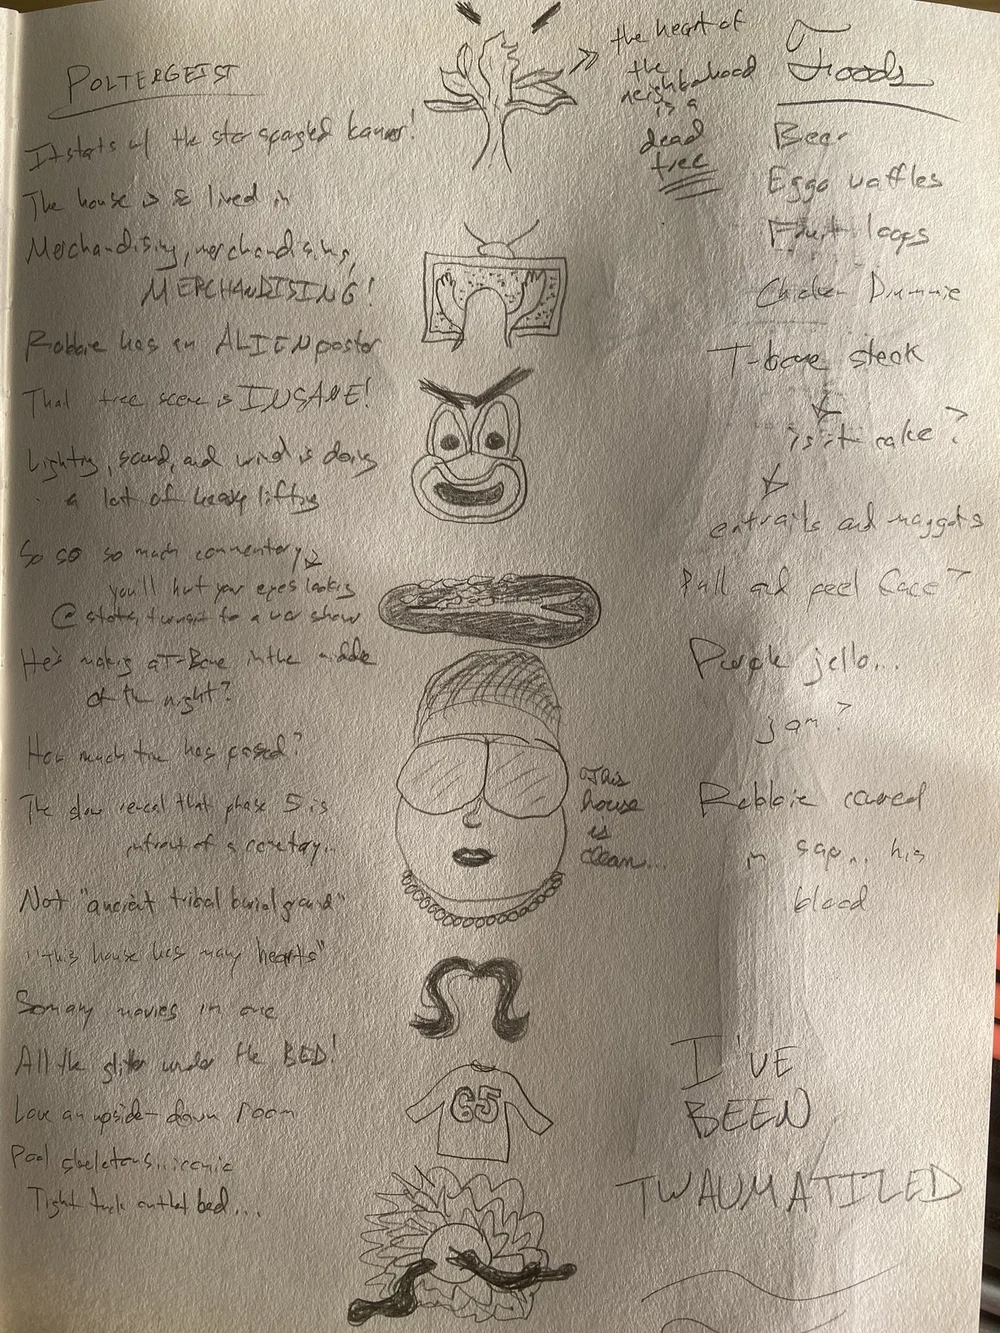 POLTERGEIST
It starts w/ the star spangled banner!
The house is so lived in
Merchandising, merchandising,
MERCHANDISING!
Robbie has an ALIEN poster
That tree scene is INSANE!
Lighting, sound, and wind is doing
a lot of heavy lifting
So so so much commentary
you'll hurt your eyes looking
@ static, turns it to a war show
He's making a T-Bone in the middle
of the night?
How much time has passed?
The slow reveal that phase 5 is
infront of a cemetary...
Not "ancient tribal burial ground"
"this house has many hearts"
So many movies in one
All the glitter under the BED!
Love an upside-down room
Pool skeletons... iconic
Tight tuck on that bed...
the heart of
the
neighborhood
is a
dead
tree
This
house
is
clean...
65
Foods
Beer
Eggo waffles
Fruit loops
Chicken Drummie
T-bone steak
is it cake?
entrails and maggots
Pull and peel face?
Purple jello...
jam?
Robbie covered
in sap... his
blood
I'VE
BEEN
TWAUMATIZED